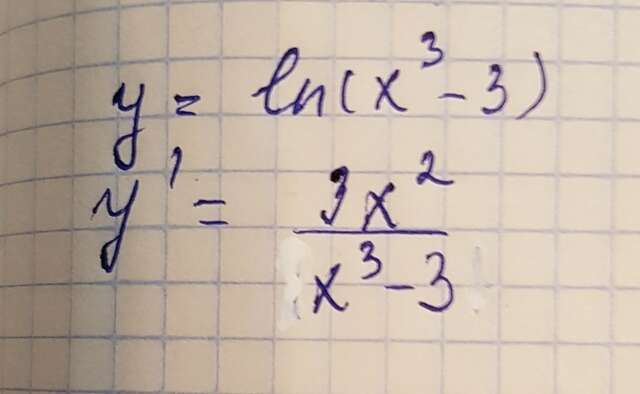 y = ln(x³ - 3)
y' = 3x² / x³ - 3